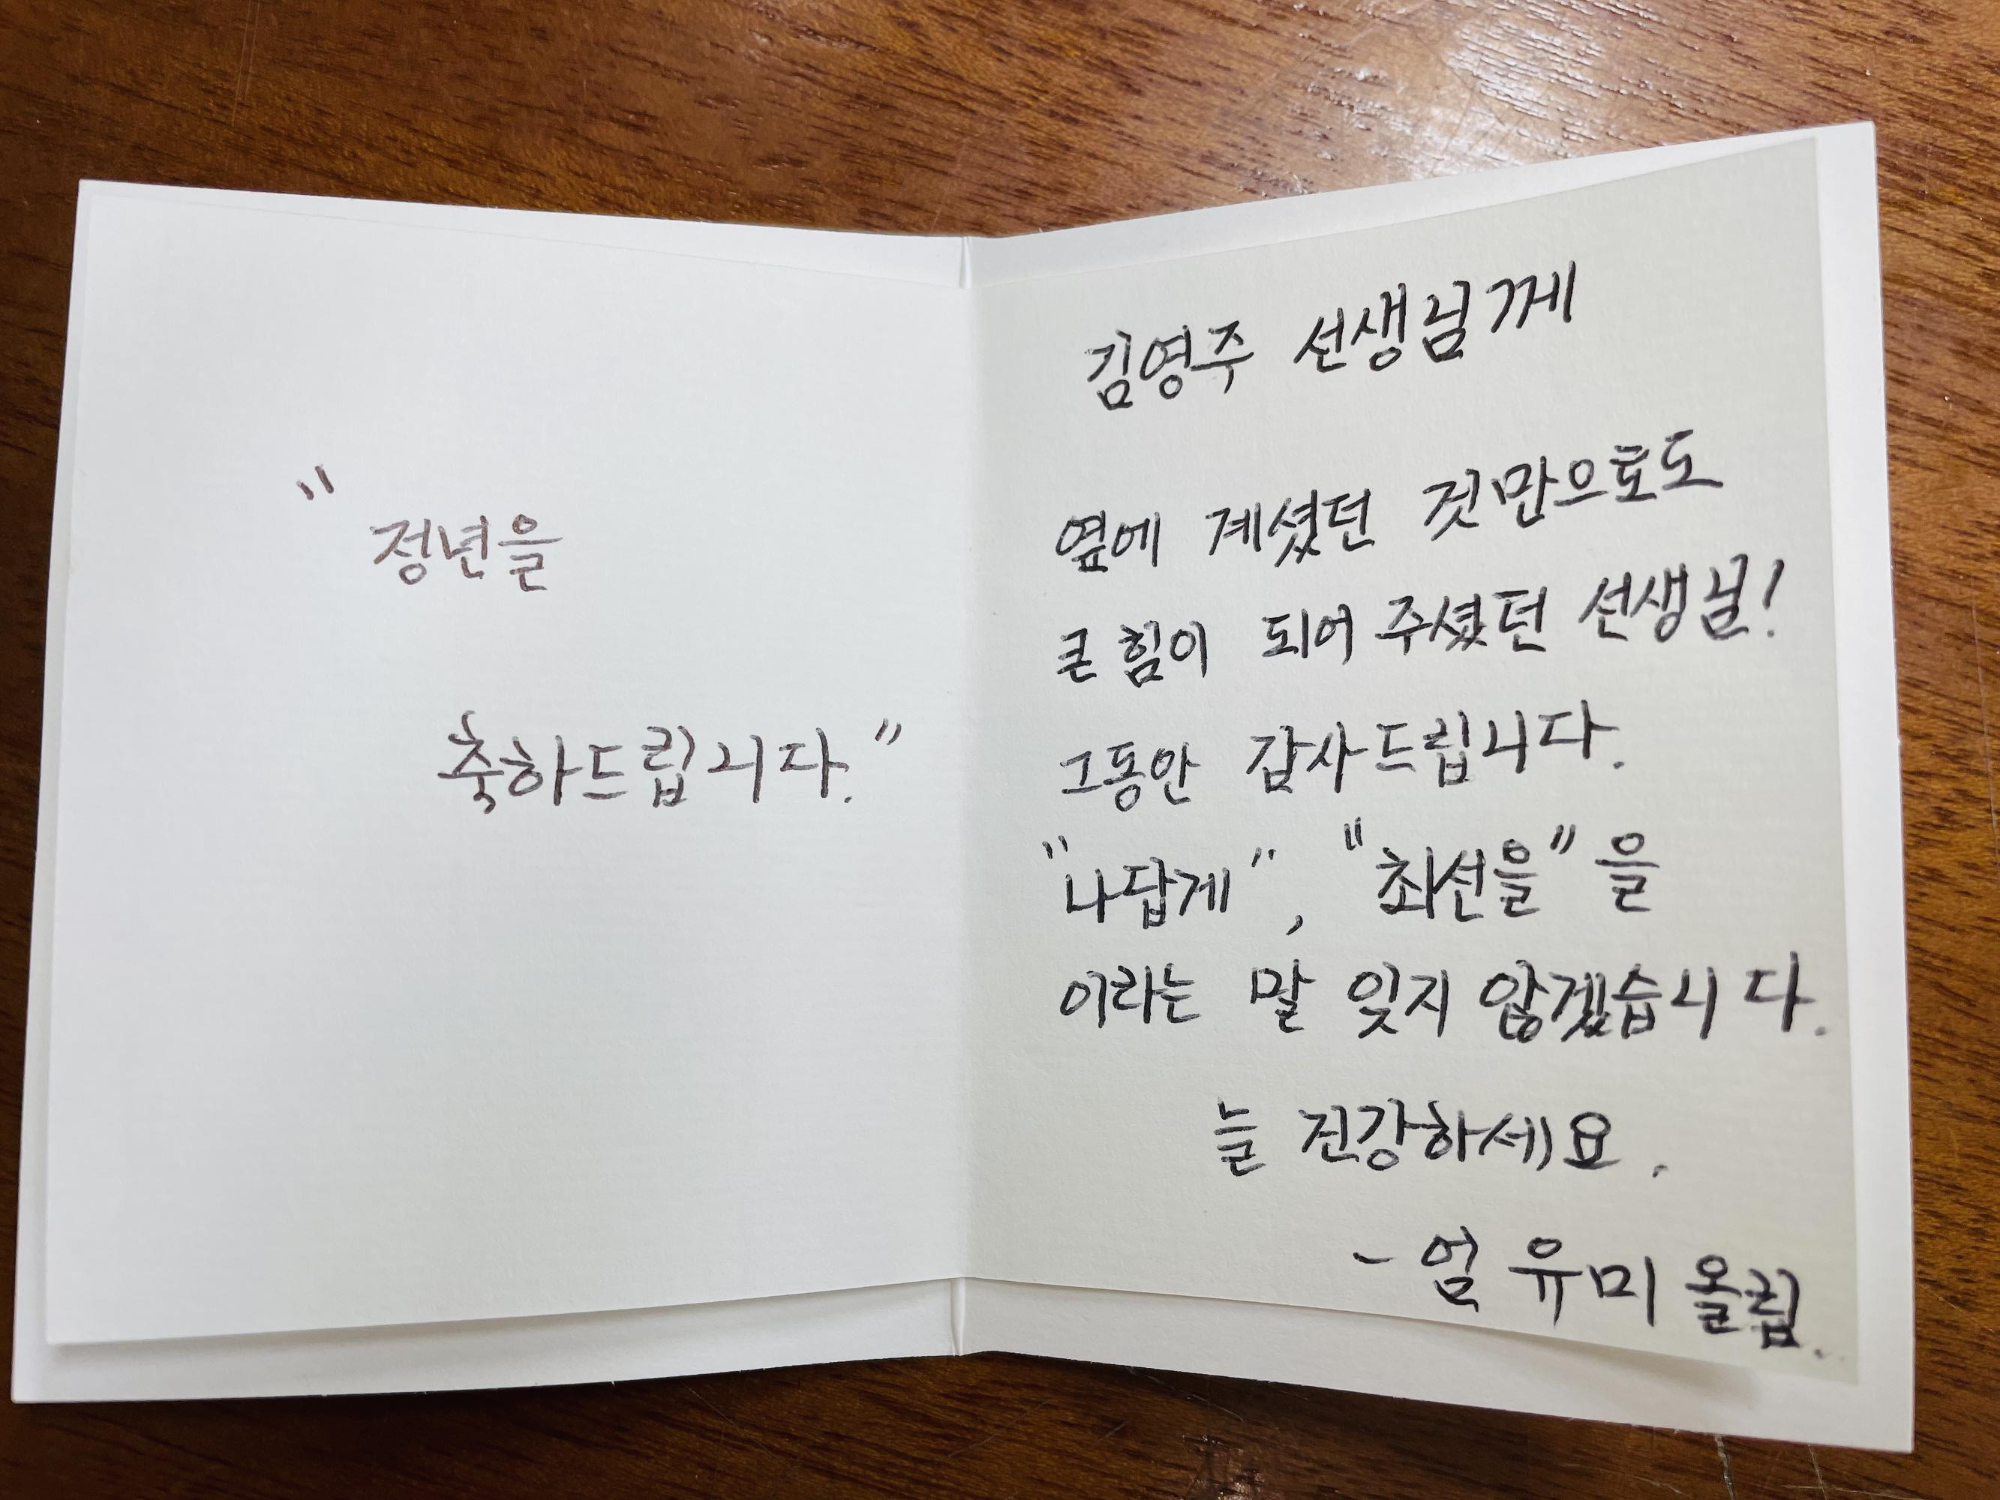 "정년을
축하드립니다."
김영주 선생님께
옆에 계셨던 것만으로도
큰 힘이 되어 주셨던 선생님!
그동안 감사드립니다.
"나답게", "최선을"을
이라는 말 잊지 않겠습니다.
늘 건강하세요.
- 엄유미 올림.